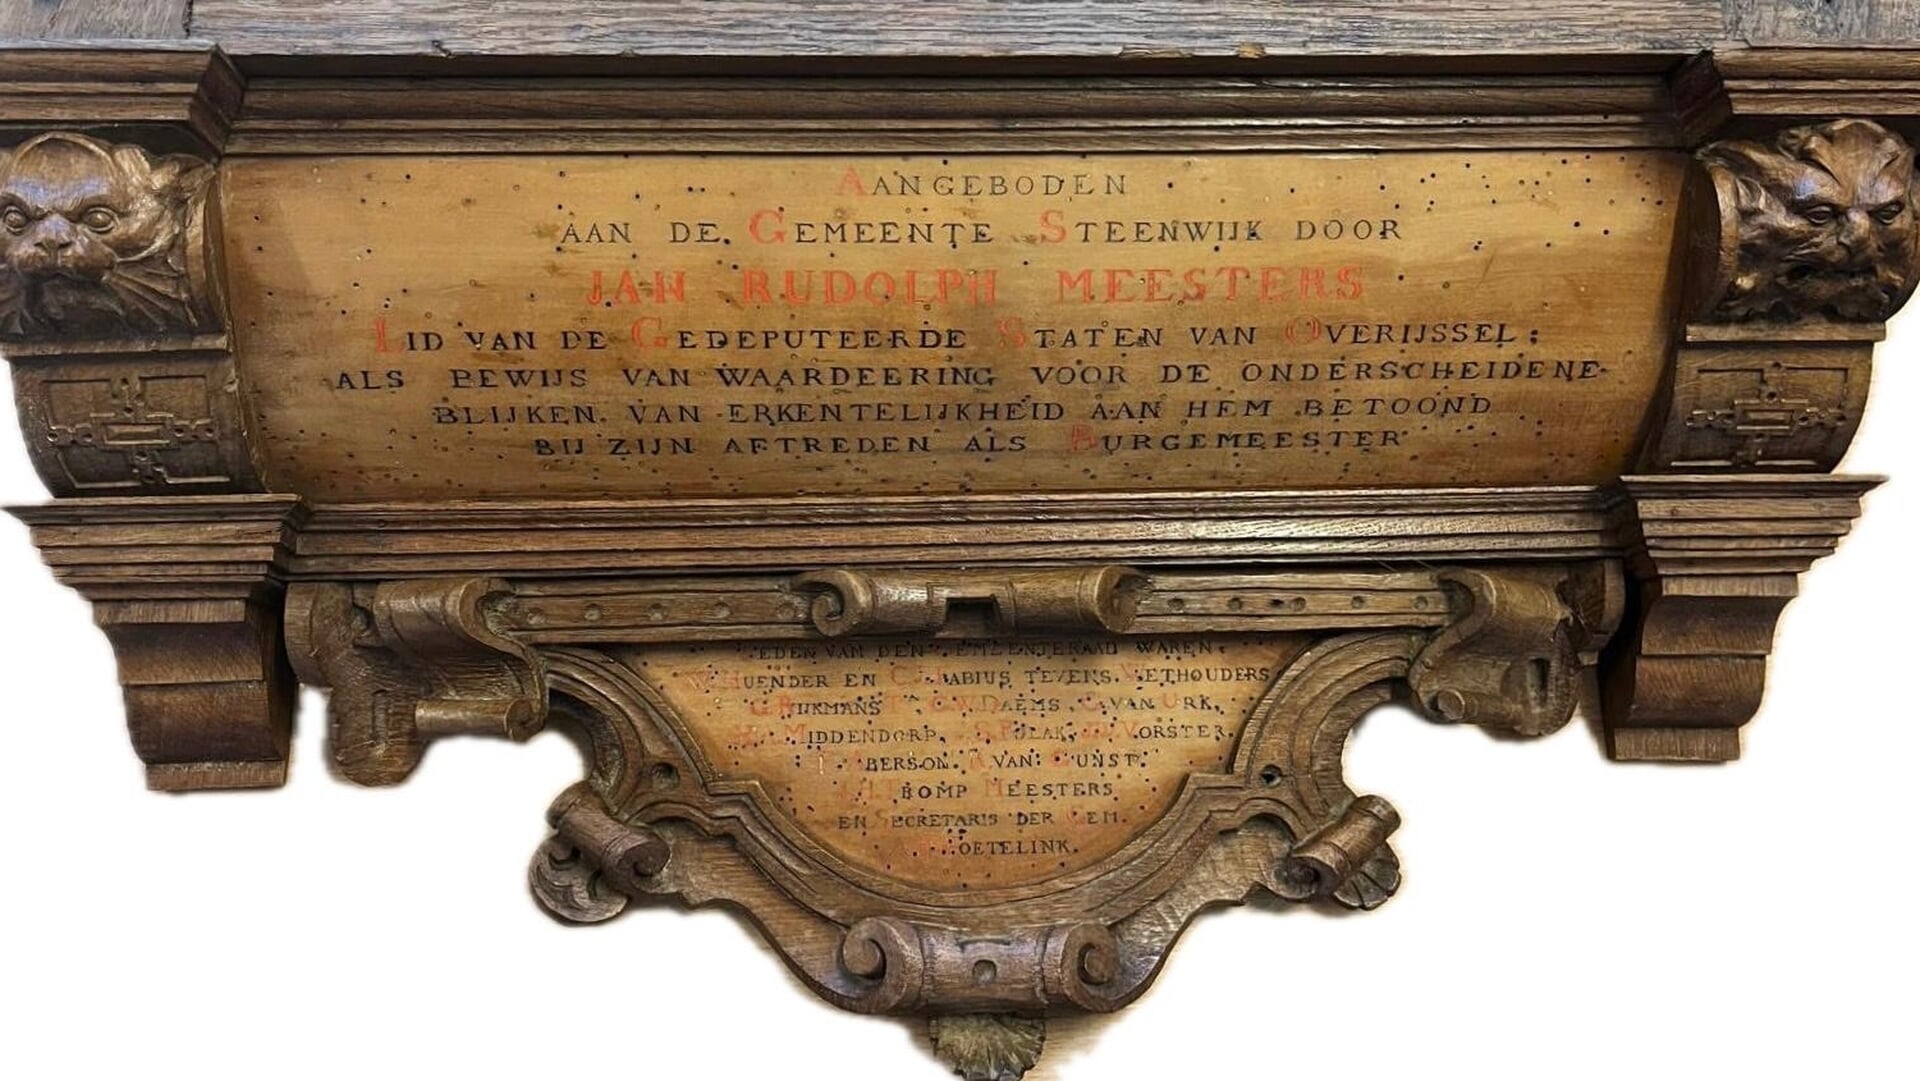 AANGEBODEN
AAN DE GEMEENTE STEENWIJK DOOR
JAN RUDOLPH MEESTERS
LID VAN DE GEDEPUTEERDE STATEN VAN OVERIJSSEL:
ALS BEWIJS VAN WAARDEERING VOOR DE ONDERSCHEIDENE
BLIJKEN VAN ERKENTELIJKHEID AAN HEM BETOOND
BIJ ZIJN AFTREDEN ALS BURGEMEESTER
LEDEN VAN DEN GEMEENTERAAD WAREN:
HUENDER EN C.J. RABIUS TEVENS WETHOUDERS
G RIJKMANS C.W. DAEMS, C. VAN URK,
MIDDENDORP, VORSTER,
ABERSON. A VAN GUNST.
TROMP MEESTERS
EN SECRETARIS DER GEM.